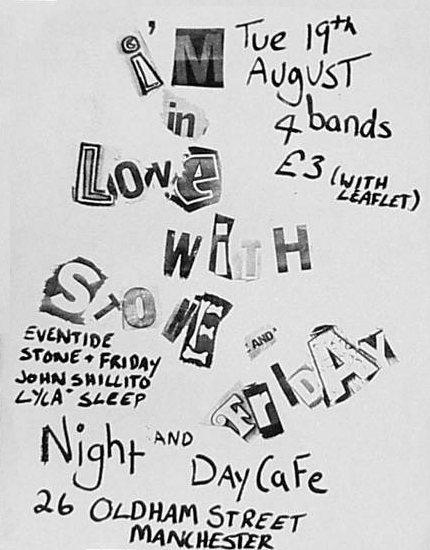 i'M
in
LoNe
WiTH
STONE
AND
FriDAY
Tue 19th
AUGUST
4 bands
£3 (WITH
LEAFLET)
EVENTIDE
STONE + FRIDAY
JOHN SHILLITO
LYCA SLEEP
Night AND
DAY CaFe
26 OLDHAM STREET
MANCHESTER